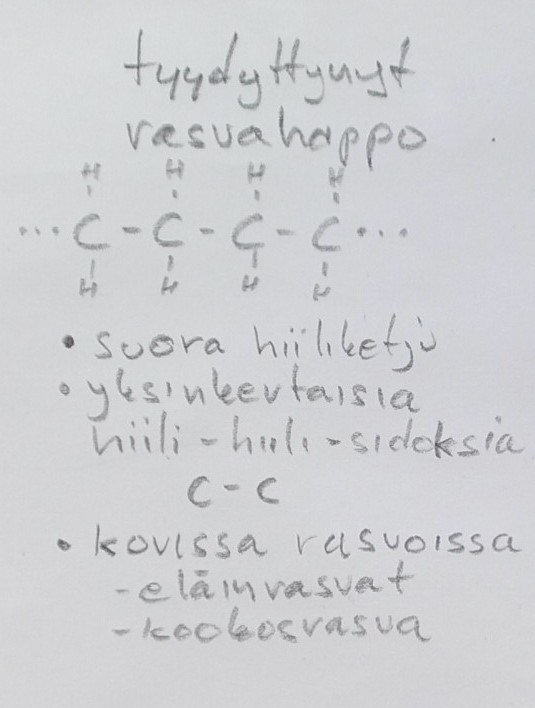 tyydyttynyt
rasvahappo
H H H H
...C-C-C-C...
H H H H
• suora hiiliketju
• yksinkertaisia
hiili-hiili-sidoksia
C-C
• kovissa rasvoissa
-eläinrasvat
-kookosrasva